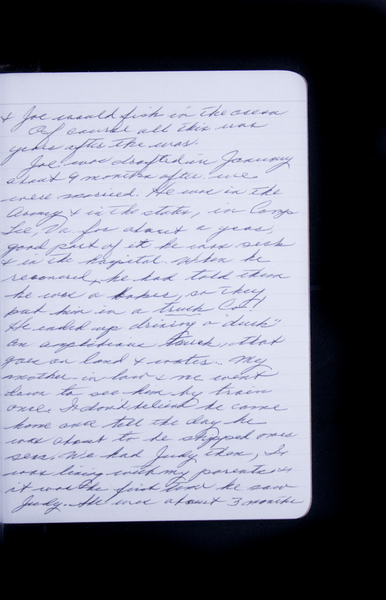 & Joe would fish in the ocean
Of course all this was
years after the war.
Joe was drafted in January
about 9 months after we
were married. He was in the
Army & in the states, in Camp
Lee, Va for almost a year,
good part of it he was sick
& in the hospital. When he
recovered, he had told them
he was a , so they
put him in a truck Co!
He ended up driving a "duck"
an amphibious truck, that
goes on land & water. My
mother-in-law & me went
down to see him by train
once. I don't believe he came
home once till the day he
was about to be shipped over
seas. We had Judy then, I
was living with my parents &
it was the first time he saw
Judy. She was about 3 months